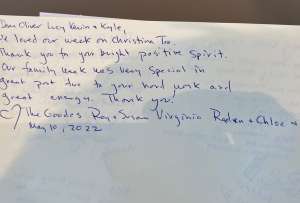 Dear Oliver Lucy Kevin + Kyle,
We loved our week on Christina Too.
Thank you for your bright positive spirit.
Our family week was very special in
great part due to your hard work and
great energy. Thank you!
The Goodes Ray + Susan Virginia + Chloe +
May 10, 2022